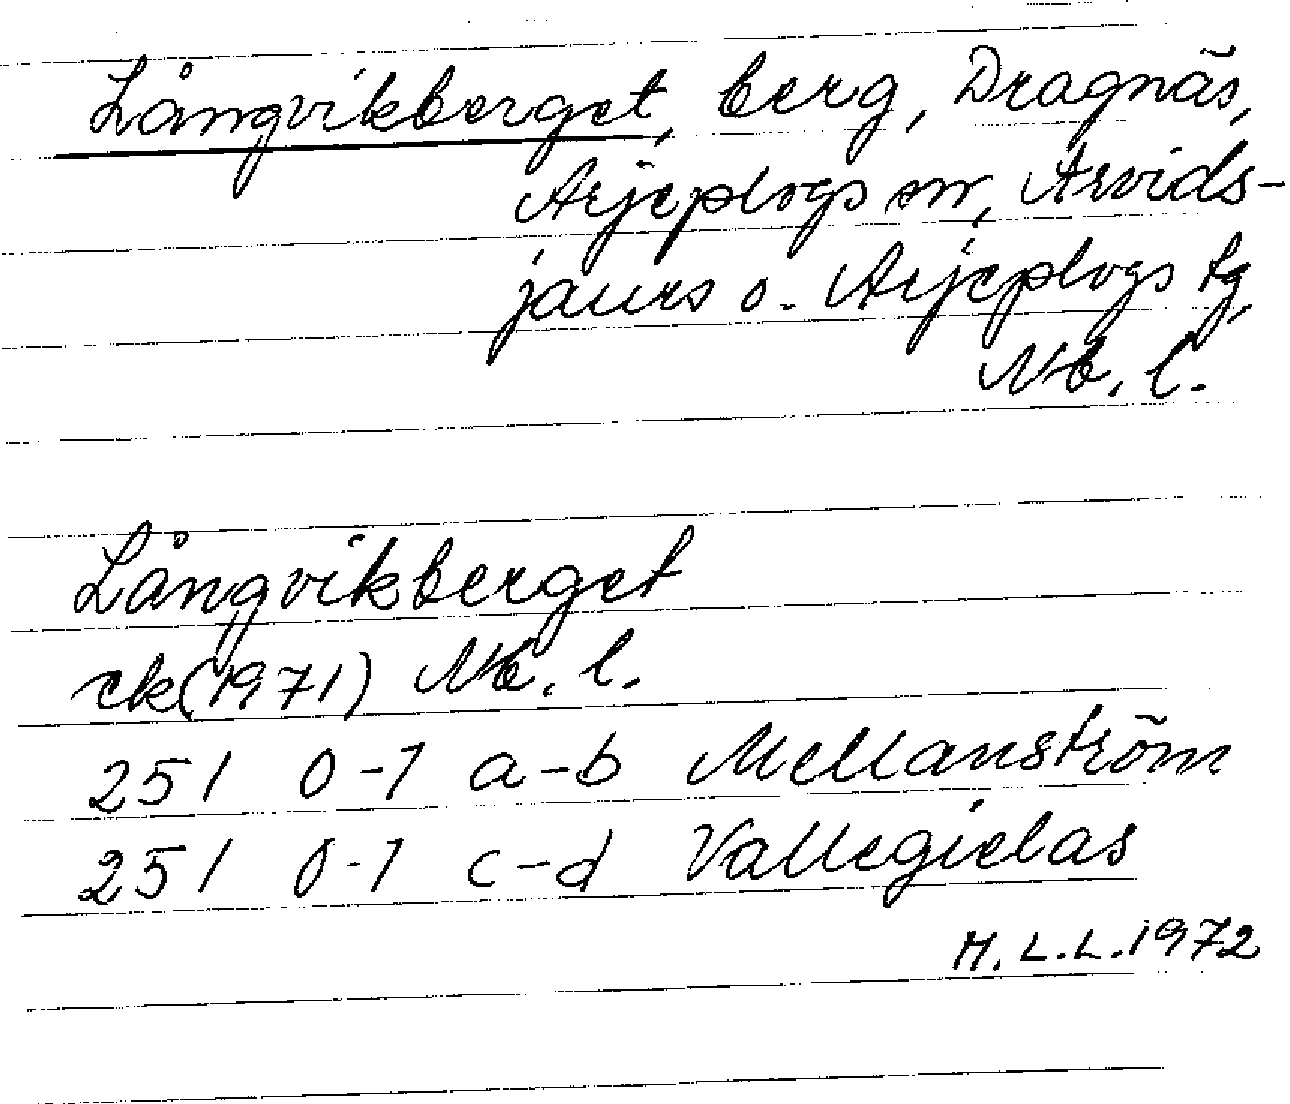 Långvikberget, berg, Dragnäs,
Arjeplogs sn, Arvids-
jaurs o. Arjeplogs tg,
Nb. l.
Långvikberget
ek (1971) Nb. l.
251 0-1 a-b Mellanström
251 0-1 c-d Vallegielas
M. L. L. 1972